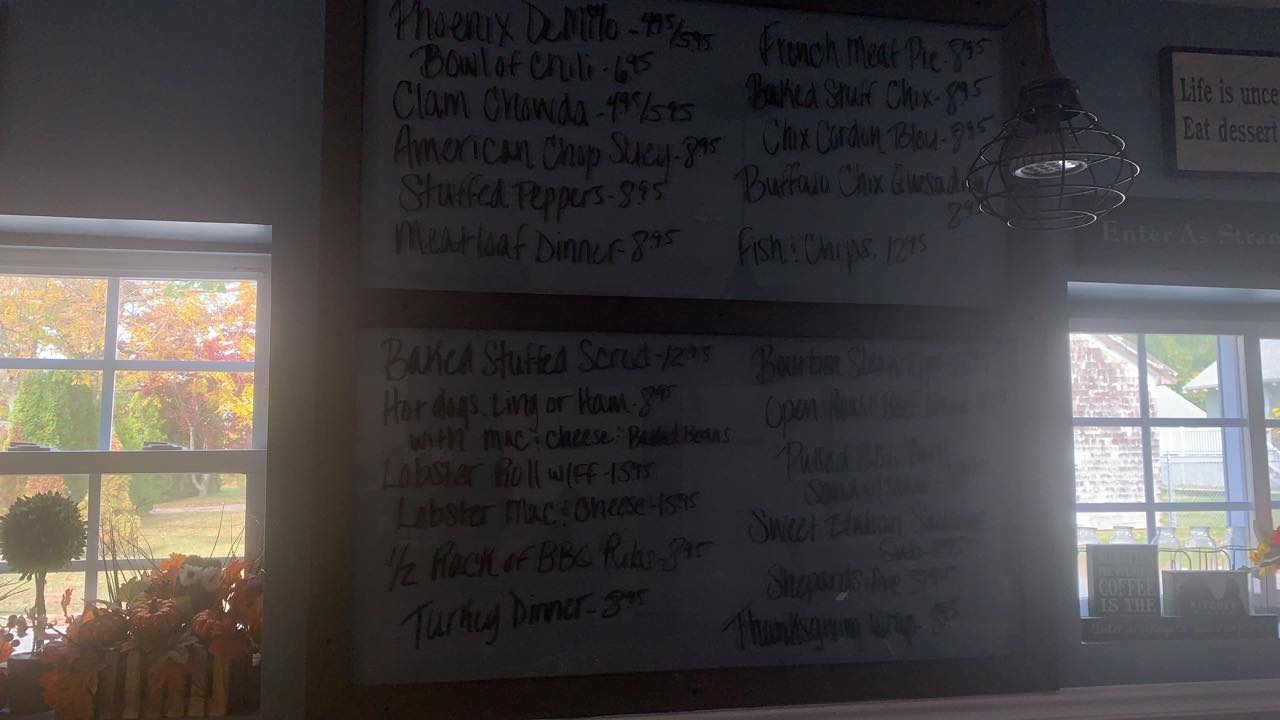 Phoenix DeMilo - 4.95/5.95
Bowl of Chili - 6.95
Clam Chowda - 4.95/5.95
American Chop Suey - 8.95
Stuffed Peppers - 8.95
Meatloaf Dinner - 8.95
French Meat Pie - 8.95
Baked Stuff Chix - 8.95
Chix Cordon Bleu - 8.95
Buffalo Chix
Fish & Chips. 12.95
Baked Stuffed Scrod - 12.95
Hot dogs, Ling or Ham - 8.95
with mac & cheese & Baked Beans
Lobster Roll w/FF - 15.95
Lobster Mac & Cheese - 15.95
1/2 Rack of BBQ Ribs - 8.95
Turkey Dinner - 8.95
Bourbon Steak
Open Roast Beef
Pulled
Sweet Italian Sausage
Sub
Shepards Pie
Thanksgiving Wrap - 8.95
Life is unce
Eat dessert
Enter As Stran
COFFEE
IS THE